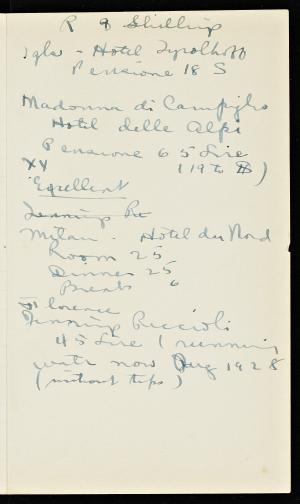 R 9 Shillings
Igls - Hotel Tyrolhoff
Pensione 18 S
Madonna di Campiglio
Hotel delle Alpi
Pensione 65 Lire
XX (19 to
"Excellent
Jennings Re
Milan - Hotel du Nord
Room 25
Dinner 25
Breaks 6
Florence
Jennings Riccioli
45 Lire (running
water now Aug 1928
(without tips)